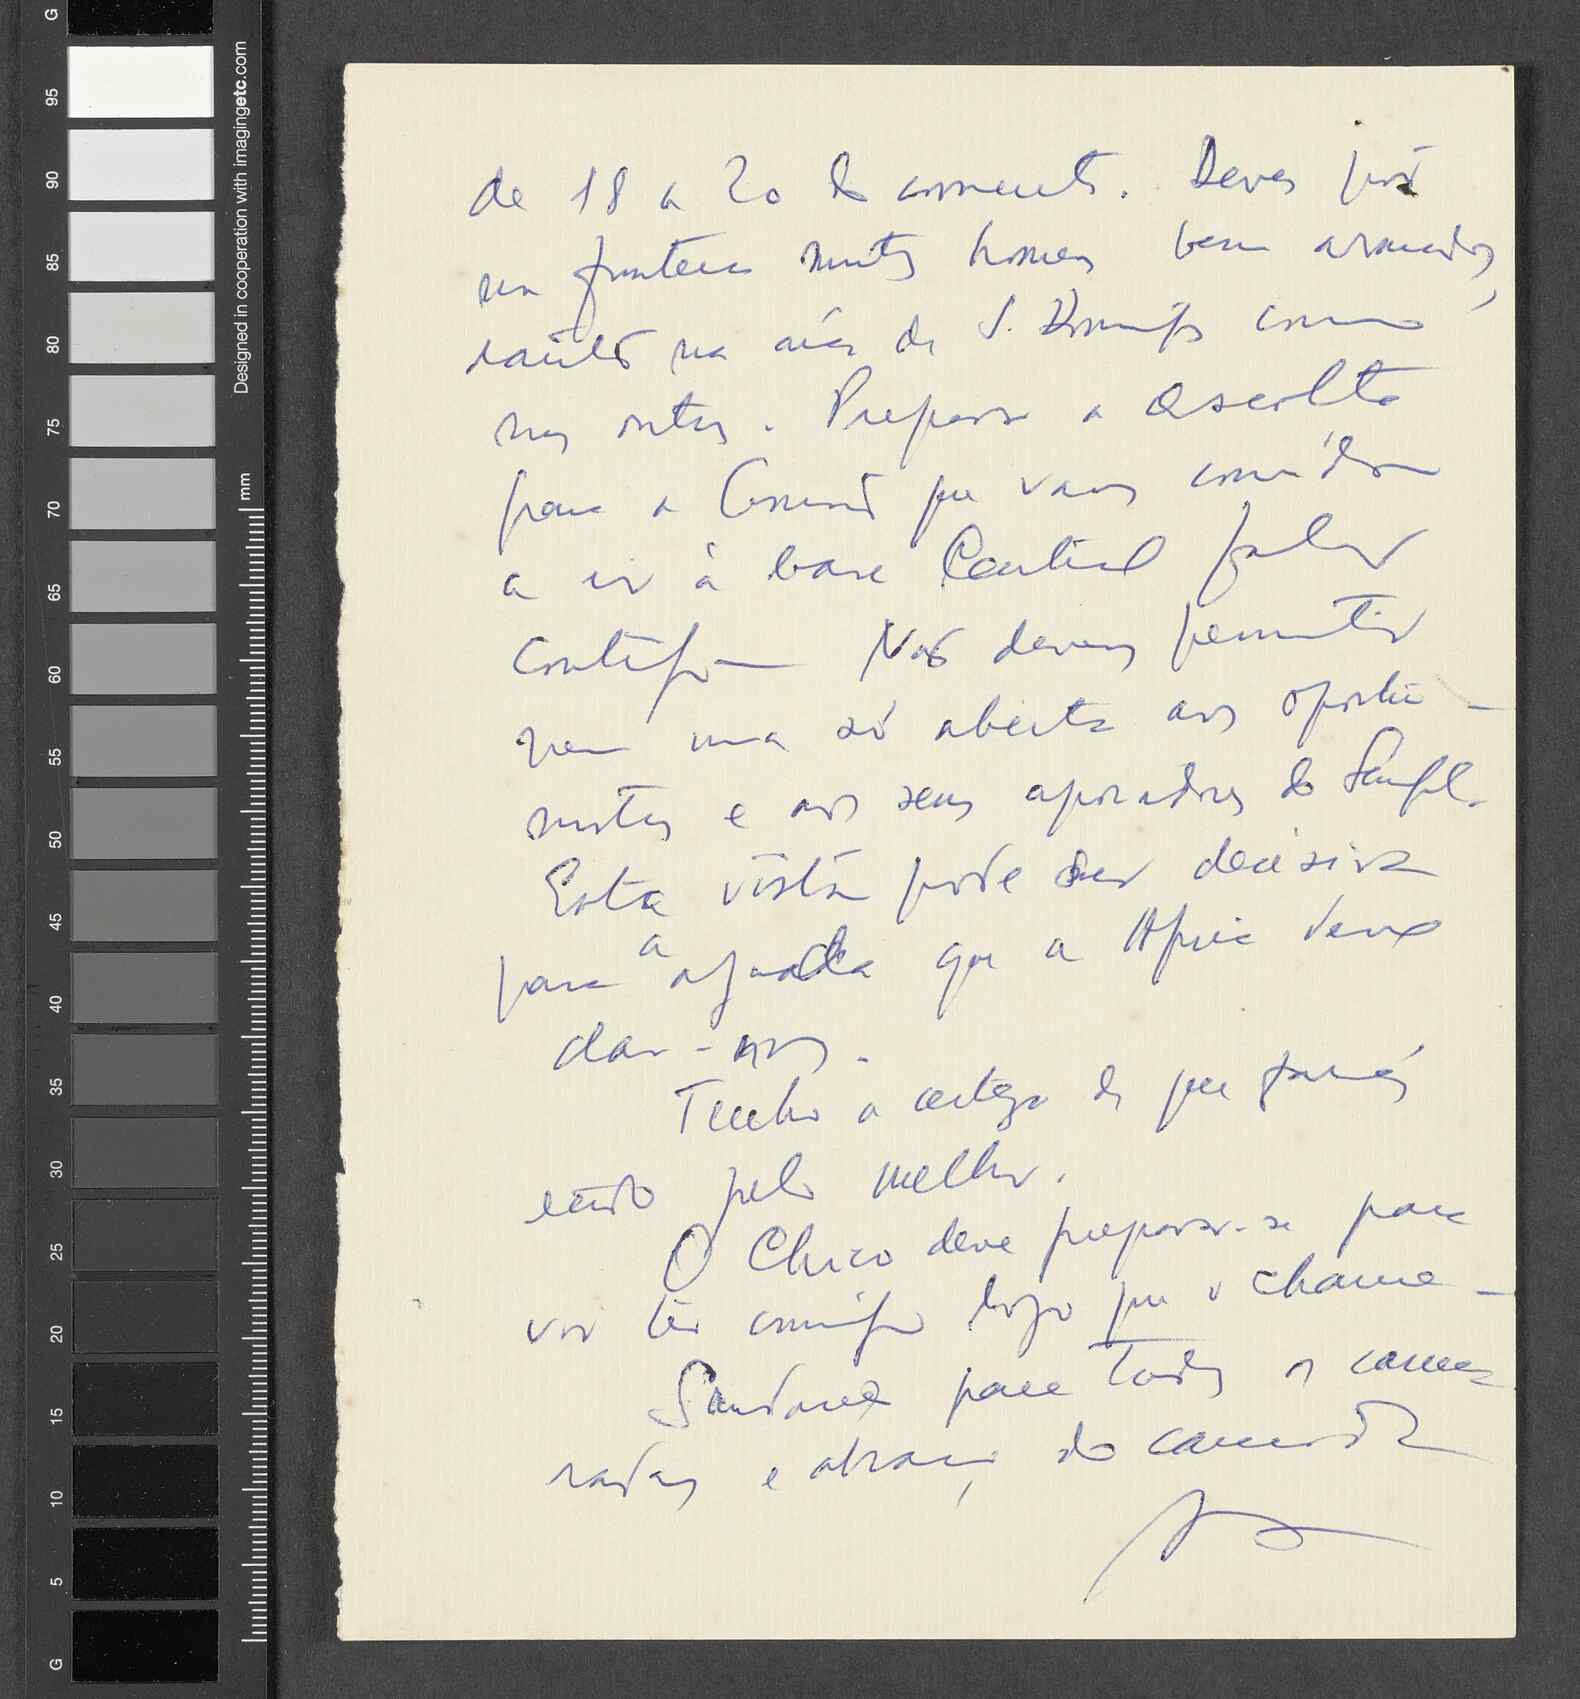 de 18 a 20 do corrente. Deves pôr
na fronteira muitos homens bem armados,
tanto na área de S. Domingos como
nas outras. Prepara a escolta
para a Comissão que vamos convidar
a ir à base Central falar
contigo — Não devemos permitir
nem uma só aberta aos oportu-
nistas e aos seus apoiadores do Senegal.
Esta visita pode ser decisiva
para a ajuda que a África deve
dar-nos.
Tenho a certeza de que farás
tudo pelo melhor.
O Chico deve preparar-se para
vir ter comigo logo que o chame —
Saudações para todos os cama-
radas e abraço do camarada
G
95
90
85
80
75
70
65
60
55
50
45
40
35
30
25
20
15
10
5
G
Designed in cooperation with imagingetc.com
mm